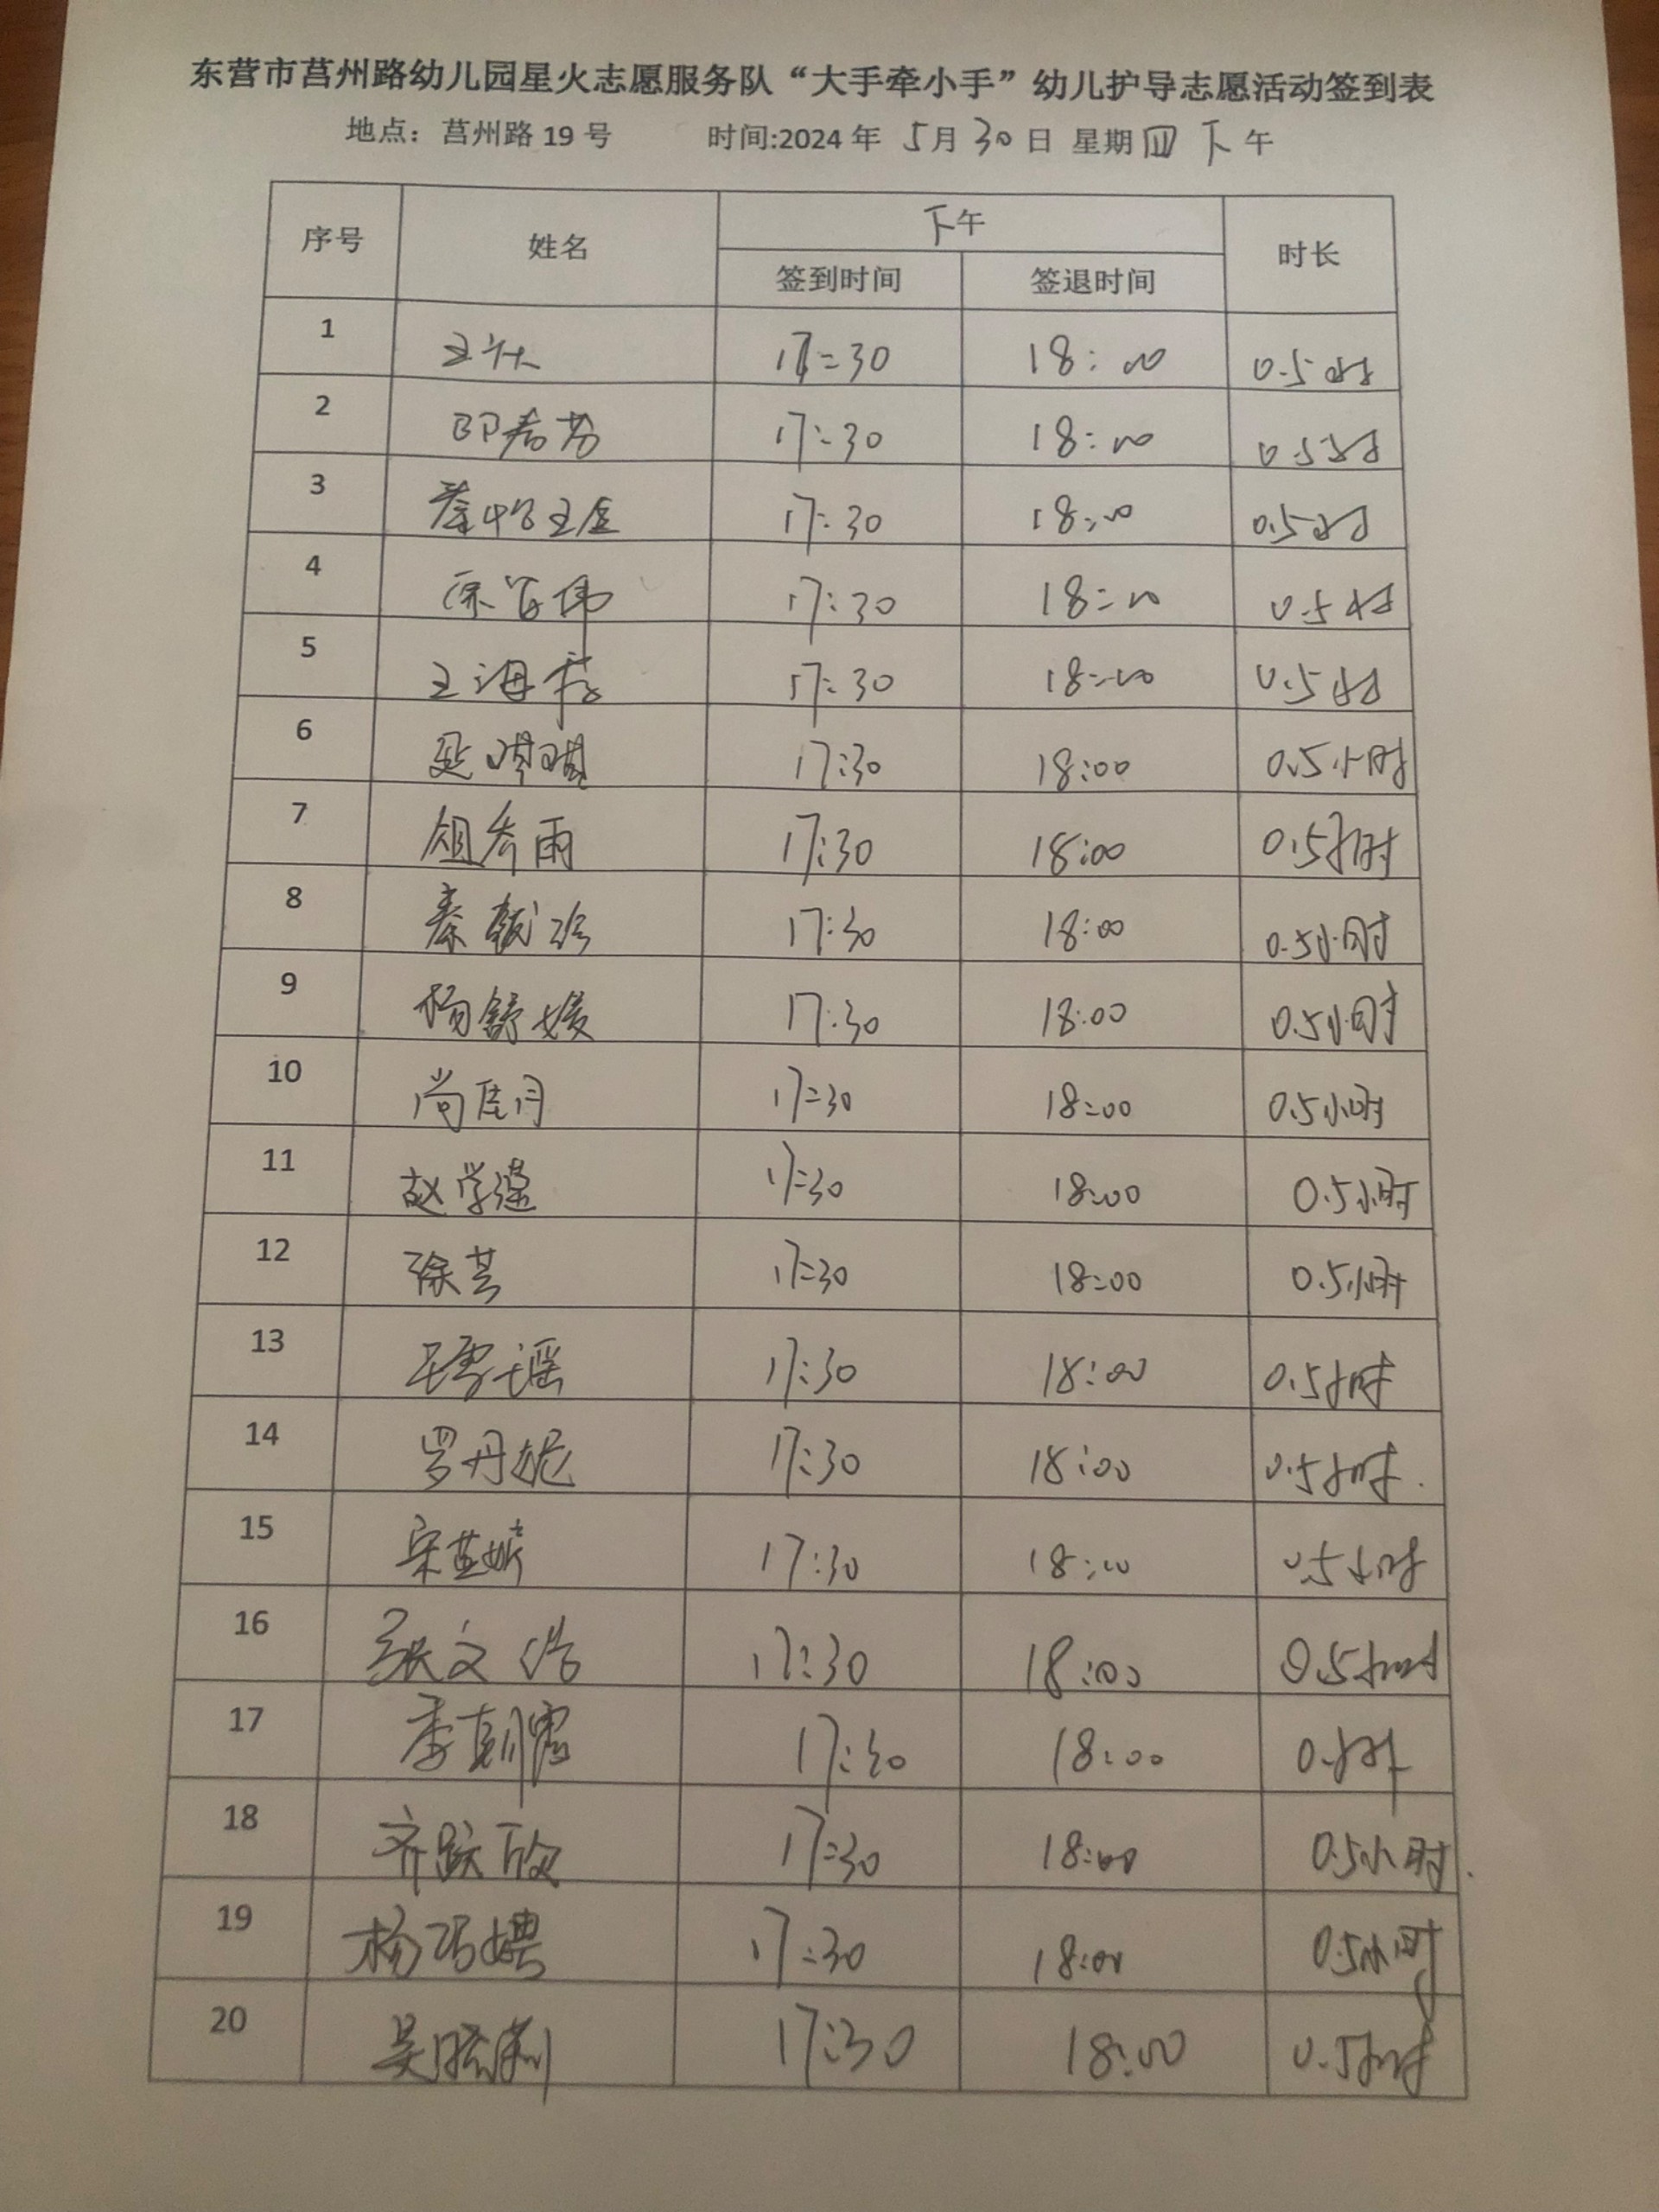 东营市莒州路幼儿园星火志愿服务队“大手牵小手”幼儿护导志愿活动签到表
地点：莒州路 19 号 时间:2024 年 5月 30 日 星期四 下午
序号 姓名 下午 时长
签到时间 签退时间
1 17:30 18:00 0.5时
2 17:30 18:00 0.5时
3 17:30 18:00 0.5时
4 17:30 18:00 0.5时
5 王海 17:30 18:00 0.5时
6 17:30 18:00 0.5小时
7 雨 17:30 18:00 0.5小时
8 秦 17:30 18:00 0.5小时
9 杨舒媛 17:30 18:00 0.5小时
10 尚佳月 17:30 18:00 0.5小时
11 赵学 17:30 18:00 0.5小时
12 徐芸 17:30 18:00 0.5小时
13 王雪瑶 17:30 18:00 0.5小时
14 罗丹妮 17:30 18:00 0.5小时.
15 宋 17:30 18:00 0.5小时
16 张文 17:30 18:00 0.5小时
17 李朝霞 17:30 18:00
18 齐跃欣 17:30 18:00 0.5小时.
19 杨巧娉 17:30 18:00 0.5小时
20 吴晓莉 17:30 18:00 0.5小时